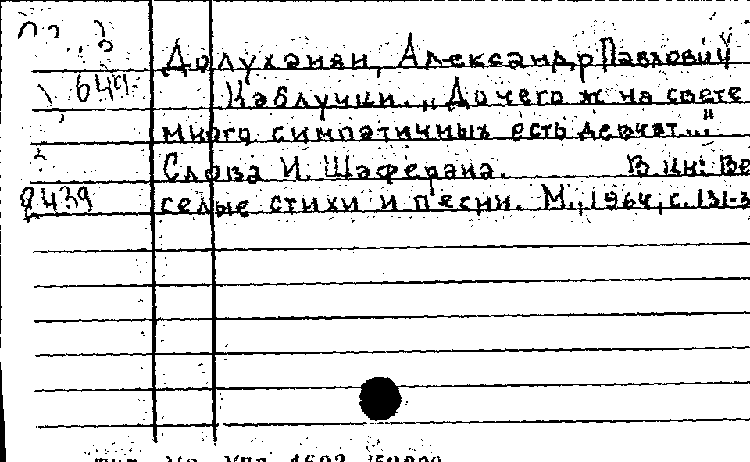 Долуханян, Александр Павлович
649 Каблучки. „Да чего ж на свете
много симпатичных есть девчат..."
Слова И. Шаферана. В кн: Ве
2439 селые стихи и песни. М., 1964, с. 131-3